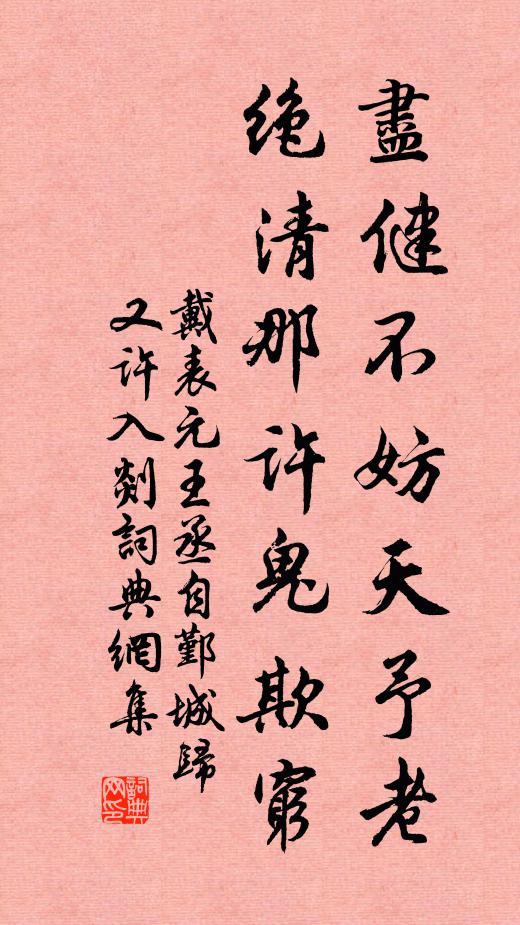 盡健不妨天予老
絶清那許鬼欺窮
戴表元王丞自鄞城歸
又許入剡詞典網集
詞典
网印